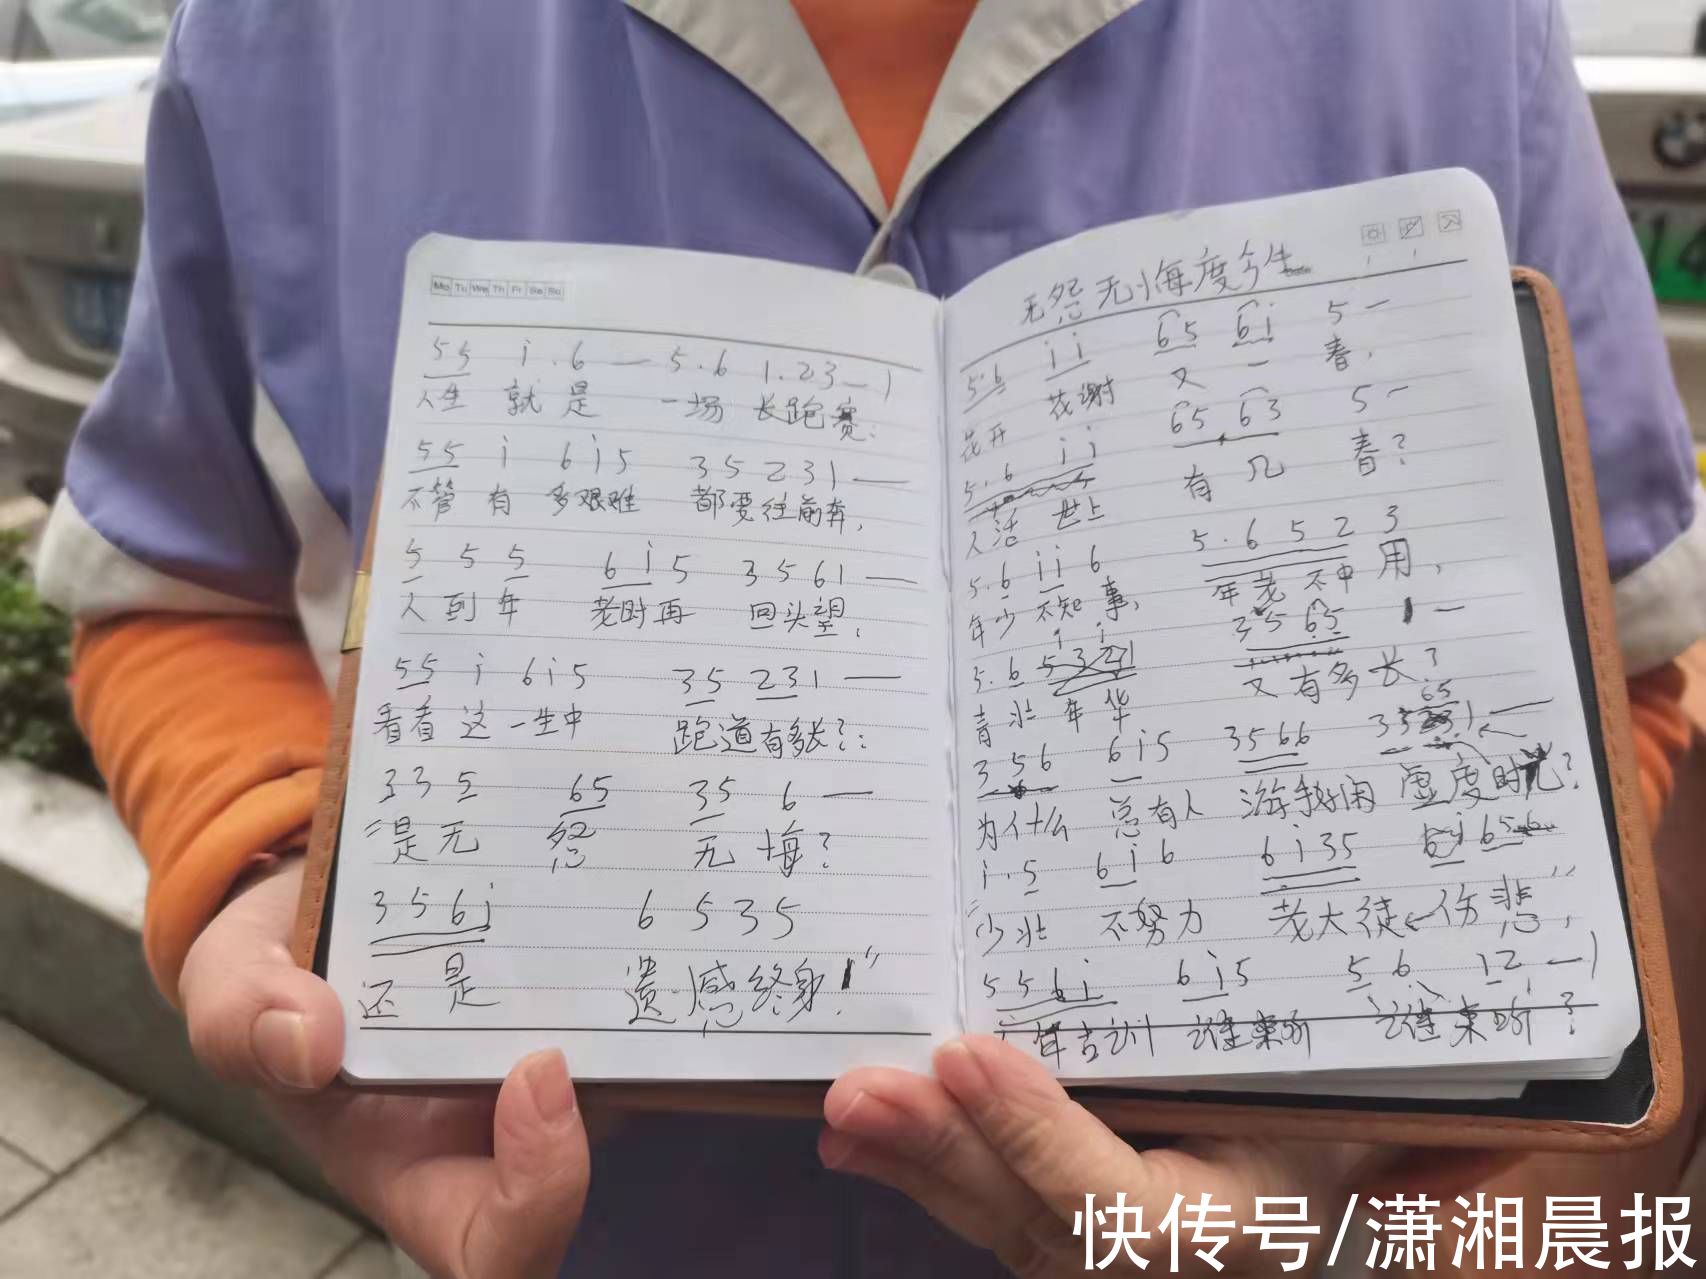 Mo Tu We Th Fr Sa Su
5 5 i . 6 — 5 . 6 1 . 2 3 — 1
人生 就 是 一场 长跑赛:
5 5 i 6 i 5 3 5 2 3 1 —
不管 有 多艰难 都要往前奔,
5 5 5 6 i 5 3 5 6 1 —
人 到 年 老时再 回头望,
5 5 i 6 i 5 3 5 2 3 1 —
看看 这 一生中 跑道有多长?:
3 3 5 6 5 3 5 6 —
"是无 怨 无 悔?
3 5 6 i 6 5 3 5
还 是 遗憾终身!"
无怨无悔度今生
5 . 6 i i 6 5 6 i 5 —
花开 花谢 又 一 春,
5 . 6 i i 6 5 6 3 5 —
人活 世上 有 几 春?
5 . 6 i i 6 5 . 6 5 2 3
年少 不知 事, 年老 不中 用,
5 . 6 5 3 2 1 3 5 6 5 1 —
青壮 年华 又有多长?
3 5 6 6 i 5 3 5 6 6 3 3 1 —
为什么 总有人 游手好闲 虚度时光?
i . 5 6 i 6 6 i 3 5 6 i 6 5
"少壮 不努力 老大徒 伤悲",
5 5 6 i 6 i 5 5 6 1 2 — 1
古训 谁来听 谁来听?
快传号/潇湘晨报